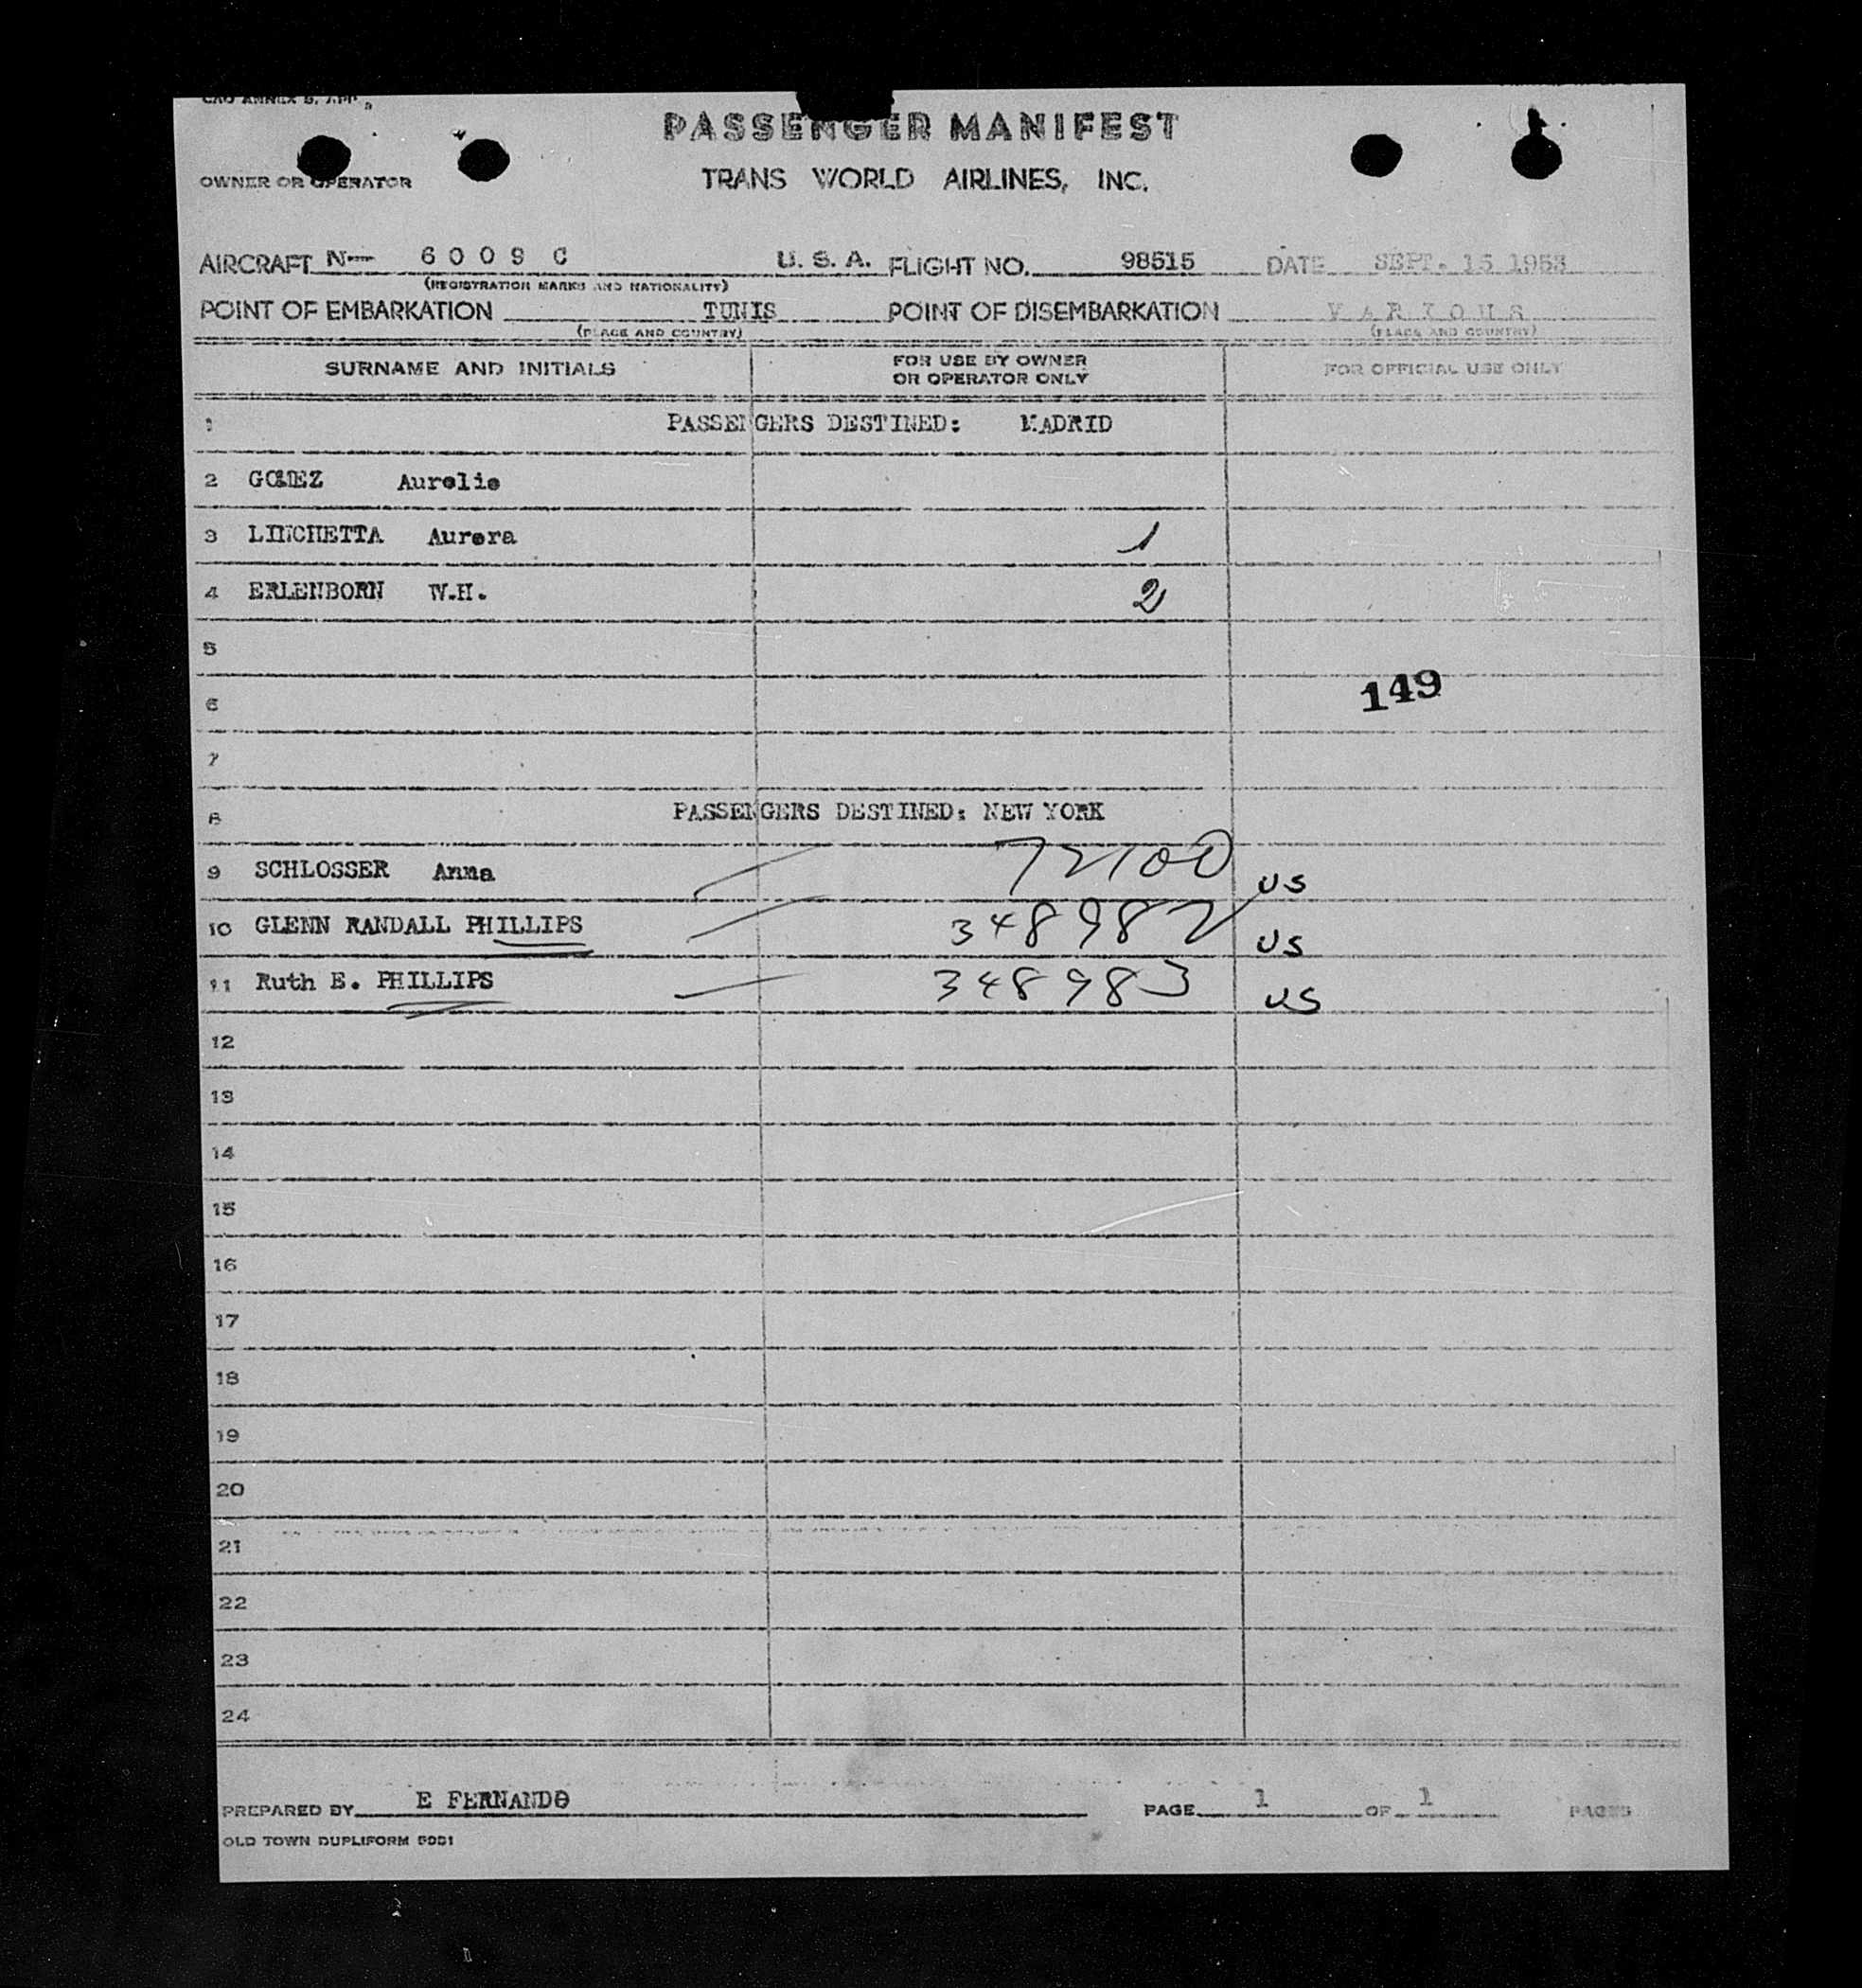 PASSENGER MANIFEST
OWNER OR OPERATOR TRANS WORLD AIRLINES, INC.
AIRCRAFT N— 6009C U.S.A. FLIGHT NO. 98515 DATE SEPT. 15 1953
(REGISTRATION MARKS AND NATIONALITY)
POINT OF EMBARKATION TUNIS POINT OF DISEMBARKATION VARIOUS
(PLACE AND COUNTRY) (PLACE AND COUNTRY)
SURNAME AND INITIALS FOR USE BY OWNER OR OPERATOR ONLY FOR OFFICIAL USE ONLY
1 PASSENGERS DESTINED: MADRID
2 GOMEZ Aurelie
3 LINCHETTA Aurora 1
4 ERLENBORN W.H. 2
5
6 149
7
8 PASSENGERS DESTINED: NEW YORK
9 SCHLOSSER Anna 72100 US
10 GLENN RANDALL PHILLIPS 348982 US
11 Ruth E. PHILLIPS 348983 US
12
13
14
15
16
17
18
19
20
21
22
23
24
PREPARED BY E FERNANDO PAGE 1 OF 1 PAGES
OLD TOWN DUPLIFORM 5051